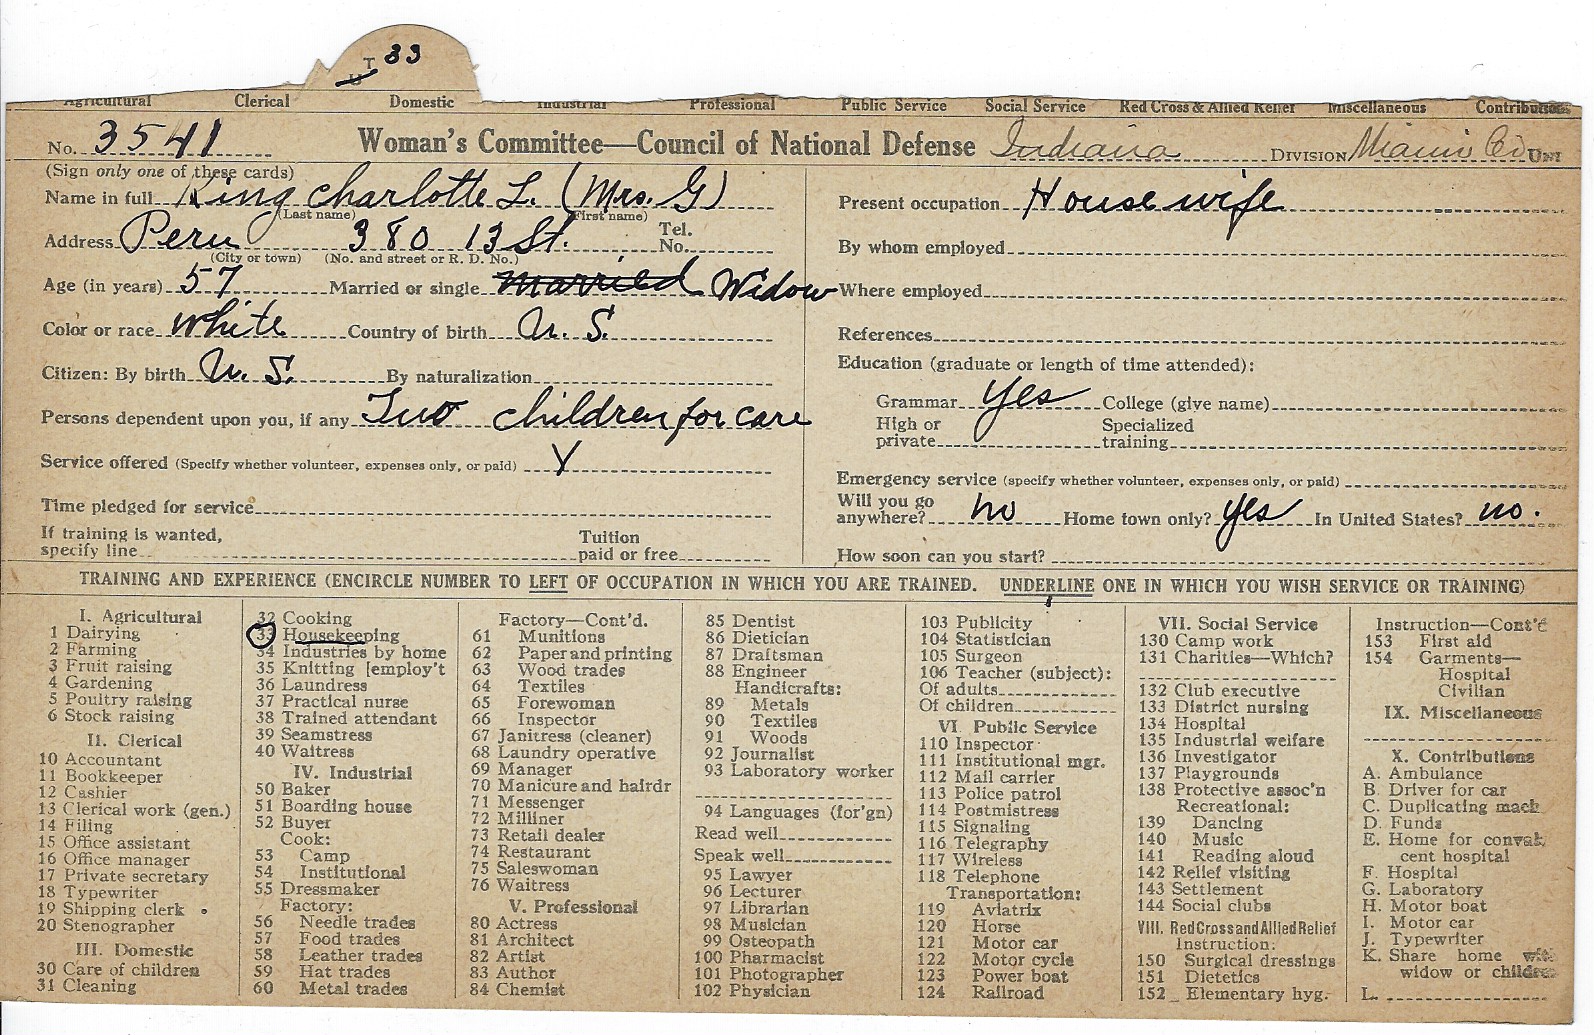 T 33
U
Agricultural Clerical Domestic Industrial Professional Public Service Social Service Red Cross & Allied Relief Miscellaneous Contributions
No. 3541 Woman's Committee—Council of National Defense Indiana DIVISION Miami Co Unit
(Sign only one of these cards)
Name in full King Charlotte L. (Mrs. G)
(Last name) (First name)
Address Peru 380 13 St. Tel. No.
(City or town) (No. and street or R. D. No.)
Age (in years) 57 Married or single married Widow
Color or race white Country of birth U. S.
Citizen: By birth U. S. By naturalization
Persons dependent upon you, if any Two children for care
Service offered (Specify whether volunteer, expenses only, or paid) Y
Time pledged for service
If training is wanted, specify line Tuition paid or free
Present occupation House wife
By whom employed
Where employed
References
Education (graduate or length of time attended):
Grammar yes College (give name)
High or private Specialized training
Emergency service (specify whether volunteer, expenses only, or paid)
Will you go anywhere? no Home town only? yes In United States? no.
How soon can you start?
TRAINING AND EXPERIENCE (ENCIRCLE NUMBER TO LEFT OF OCCUPATION IN WHICH YOU ARE TRAINED. UNDERLINE ONE IN WHICH YOU WISH SERVICE OR TRAINING)
I. Agricultural
1 Dairying
2 Farming
3 Fruit raising
4 Gardening
5 Poultry raising
6 Stock raising
II. Clerical
10 Accountant
11 Bookkeeper
12 Cashier
13 Clerical work (gen.)
14 Filing
15 Office assistant
16 Office manager
17 Private secretary
18 Typewriter
19 Shipping clerk
20 Stenographer
III. Domestic
30 Care of children
31 Cleaning
32 Cooking
33 Housekeeping
34 Industries by home
35 Knitting [employ't
36 Laundress
37 Practical nurse
38 Trained attendant
39 Seamstress
40 Waitress
IV. Industrial
50 Baker
51 Boarding house
52 Buyer
Cook:
53 Camp
54 Institutional
55 Dressmaker
Factory:
56 Needle trades
57 Food trades
58 Leather trades
59 Hat trades
60 Metal trades
Factory—Cont'd.
61 Munitions
62 Paper and printing
63 Wood trades
64 Textiles
65 Forewoman
66 Inspector
67 Janitress (cleaner)
68 Laundry operative
69 Manager
70 Manicure and hairdr
71 Messenger
72 Milliner
73 Retail dealer
74 Restaurant
75 Saleswoman
76 Waitress
V. Professional
80 Actress
81 Architect
82 Artist
83 Author
84 Chemist
85 Dentist
86 Dietician
87 Draftsman
88 Engineer
Handicrafts:
89 Metals
90 Textiles
91 Woods
92 Journalist
93 Laboratory worker
94 Languages (for'gn)
Read well
Speak well
95 Lawyer
96 Lecturer
97 Librarian
98 Musician
99 Osteopath
100 Pharmacist
101 Photographer
102 Physician
103 Publicity
104 Statistician
105 Surgeon
106 Teacher (subject):
Of adults
Of children
VI. Public Service
110 Inspector
111 Institutional mgr.
112 Mail carrier
113 Police patrol
114 Postmistress
115 Signaling
116 Telegraphy
117 Wireless
118 Telephone
Transportation:
119 Aviatrix
120 Horse
121 Motor car
122 Motor cycle
123 Power boat
124 Railroad
VII. Social Service
130 Camp work
131 Charities—Which?
132 Club executive
133 District nursing
134 Hospital
135 Industrial welfare
136 Investigator
137 Playgrounds
138 Protective assoc'n
Recreational:
139 Dancing
140 Music
141 Reading aloud
142 Relief visiting
143 Settlement
144 Social clubs
VIII. Red Cross and Allied Relief
Instruction:
150 Surgical dressings
151 Dietetics
152 Elementary hyg.
Instruction—Cont'd
153 First aid
154 Garments—
Hospital
Civilian
IX. Miscellaneous
X. Contributions
A. Ambulance
B. Driver for car
C. Duplicating mach.
D. Funds
E. Home for conval
cent hospital
F. Hospital
G. Laboratory
H. Motor boat
I. Motor car
J. Typewriter
K. Share home with
widow or children
L.